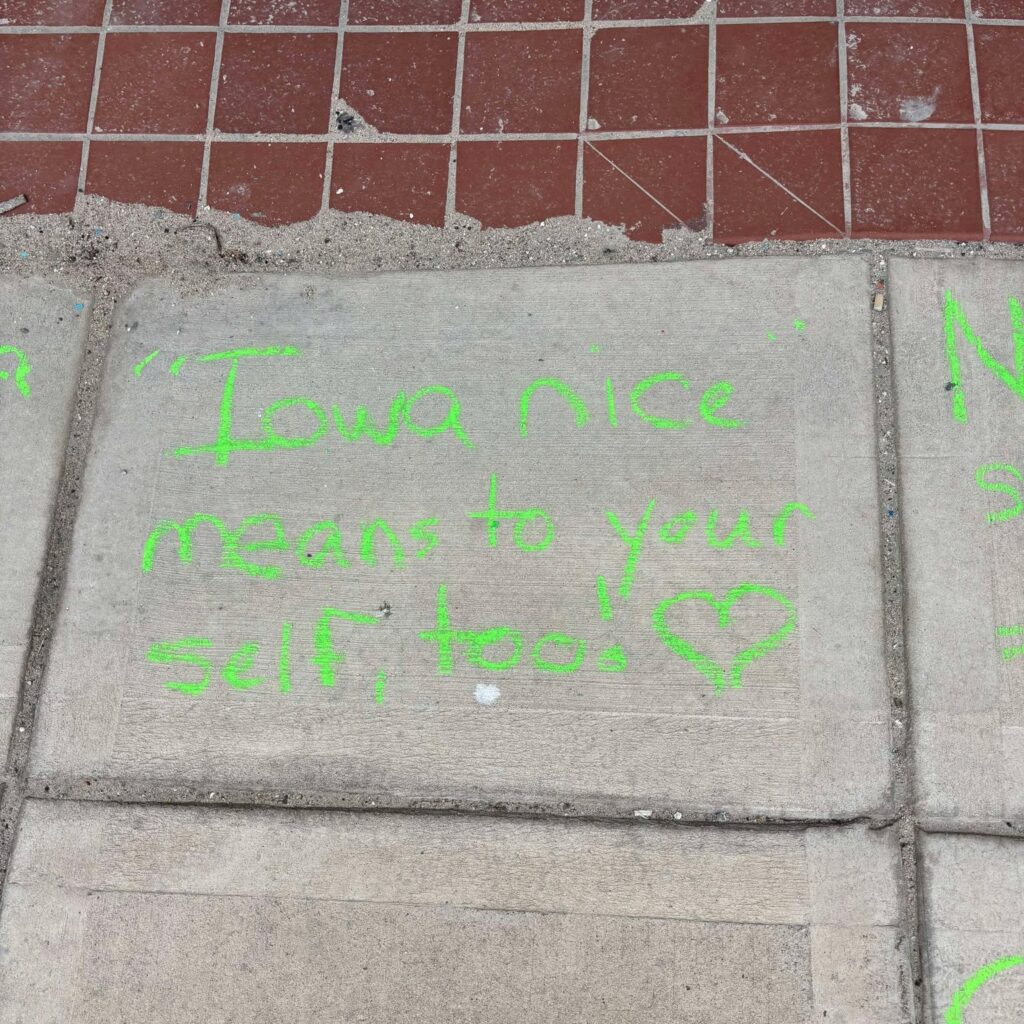 "Iowa nice"
means to your
self, too! ♡